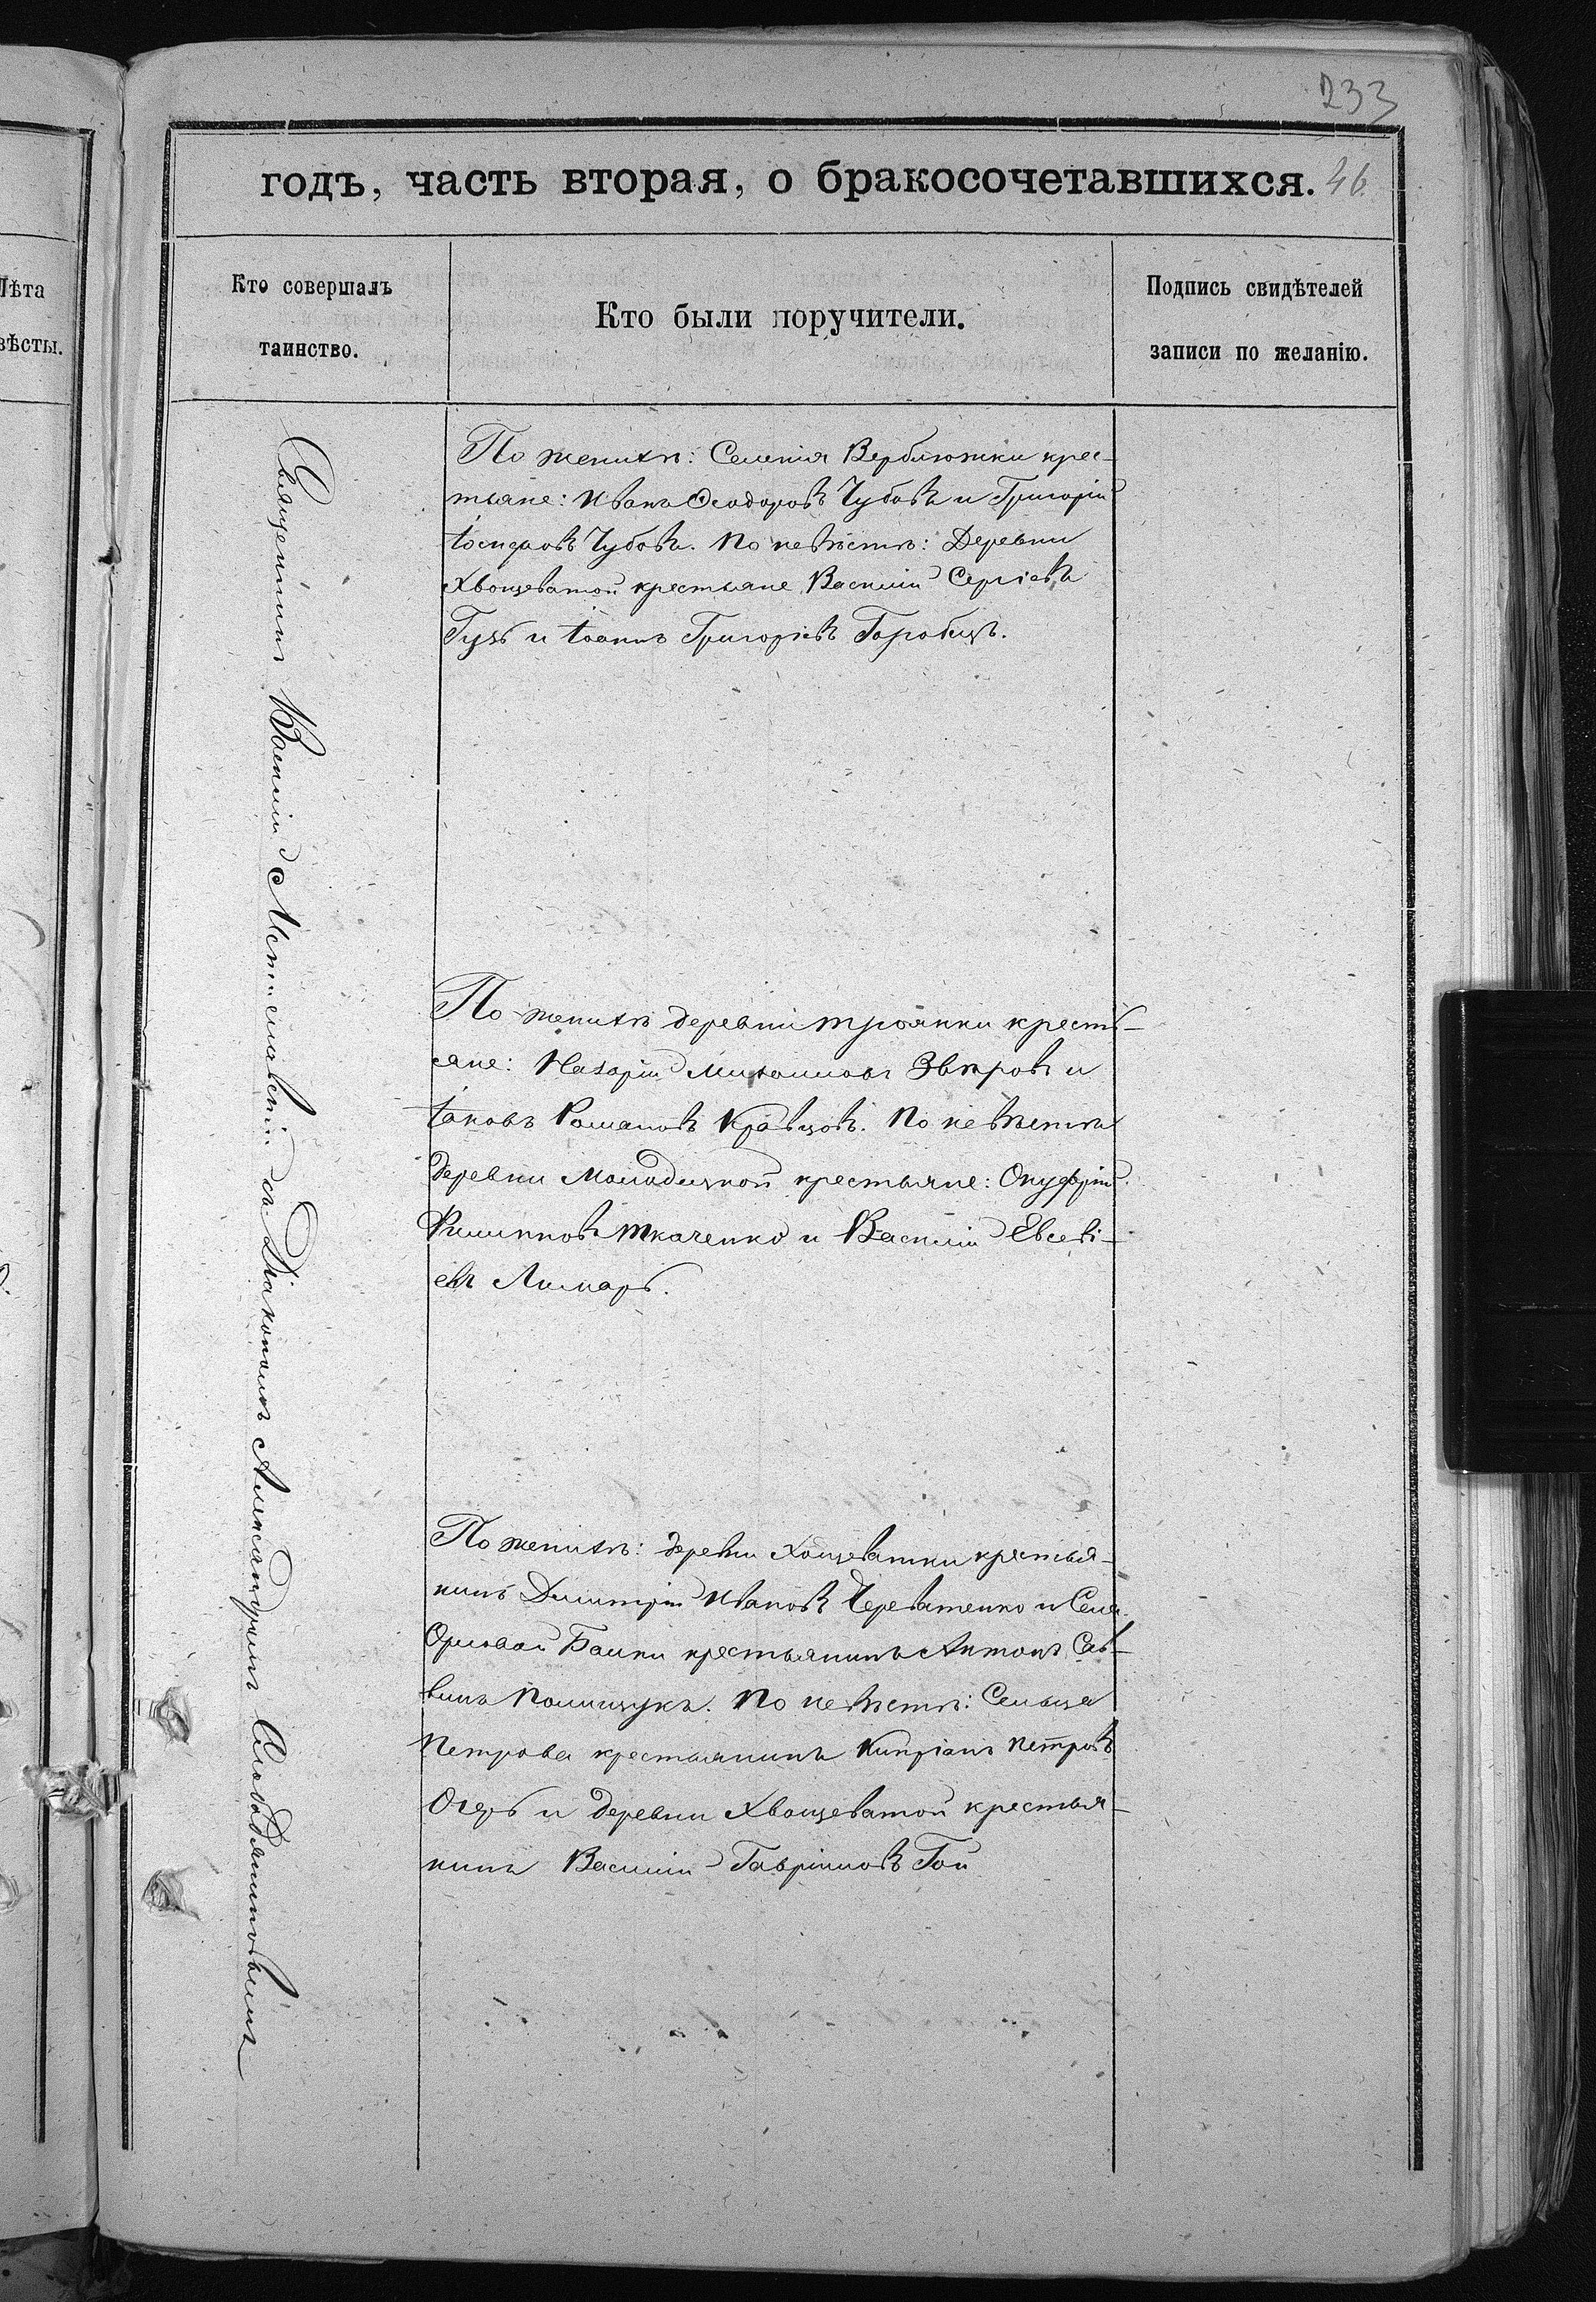 233
годъ, часть вторая, о бракосочетавшихся. 46.
Лѣта
вѣсты.
Кто совершалъ
таинство.
Кто были поручители.
Подпись свидѣтелей
записи по желанію.
Священникъ Василій Мстиславскій съ Діакономъ Александромъ
По женихѣ: Селенія Вербліожки крес-
тьяне: Иванъ Ѳеодоровъ Чубовъ и Григорій
Іосифовъ Чубовъ. По невѣстѣ: Деревни
Хвощеватой крестьяне Василій Сергіевъ
Гузь и Іоаннъ Григоріевъ Горобецъ.
По женихѣ деревни Троянки кресть-
яне: Назарій Михаиловъ Звѣровъ и
Іаковъ Романовъ Кравцовъ. По невѣстѣ
деревни Молодецкой крестьяне: Онуфрій
Филипповъ Ткаченко и Василій Евсеві-
евъ Лимарь.
По женихѣ: деревни Хощеватки крестья-
нинъ Димитрій Ивановъ Череватенко и Села
Орловой Балки крестьянинъ Антонъ Сав-
винъ Полищукъ. По невѣстѣ: Сельца
Петрова крестьянинъ Кипріанъ Петровъ
и деревни Хвощеватой крестья-
нинъ Василій Гавріиловъ Гой